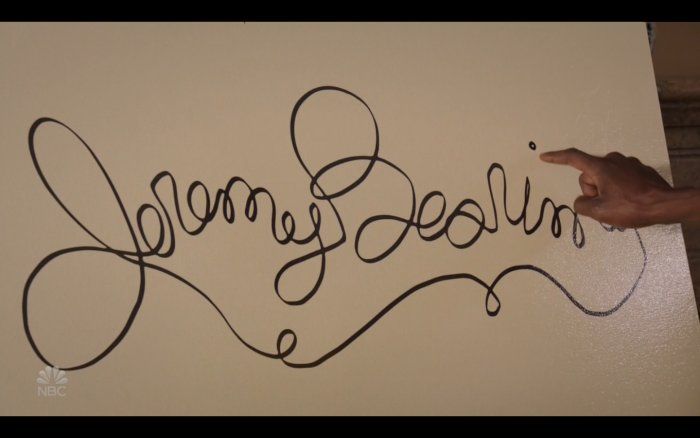 Jeremy Bearimy
NBC